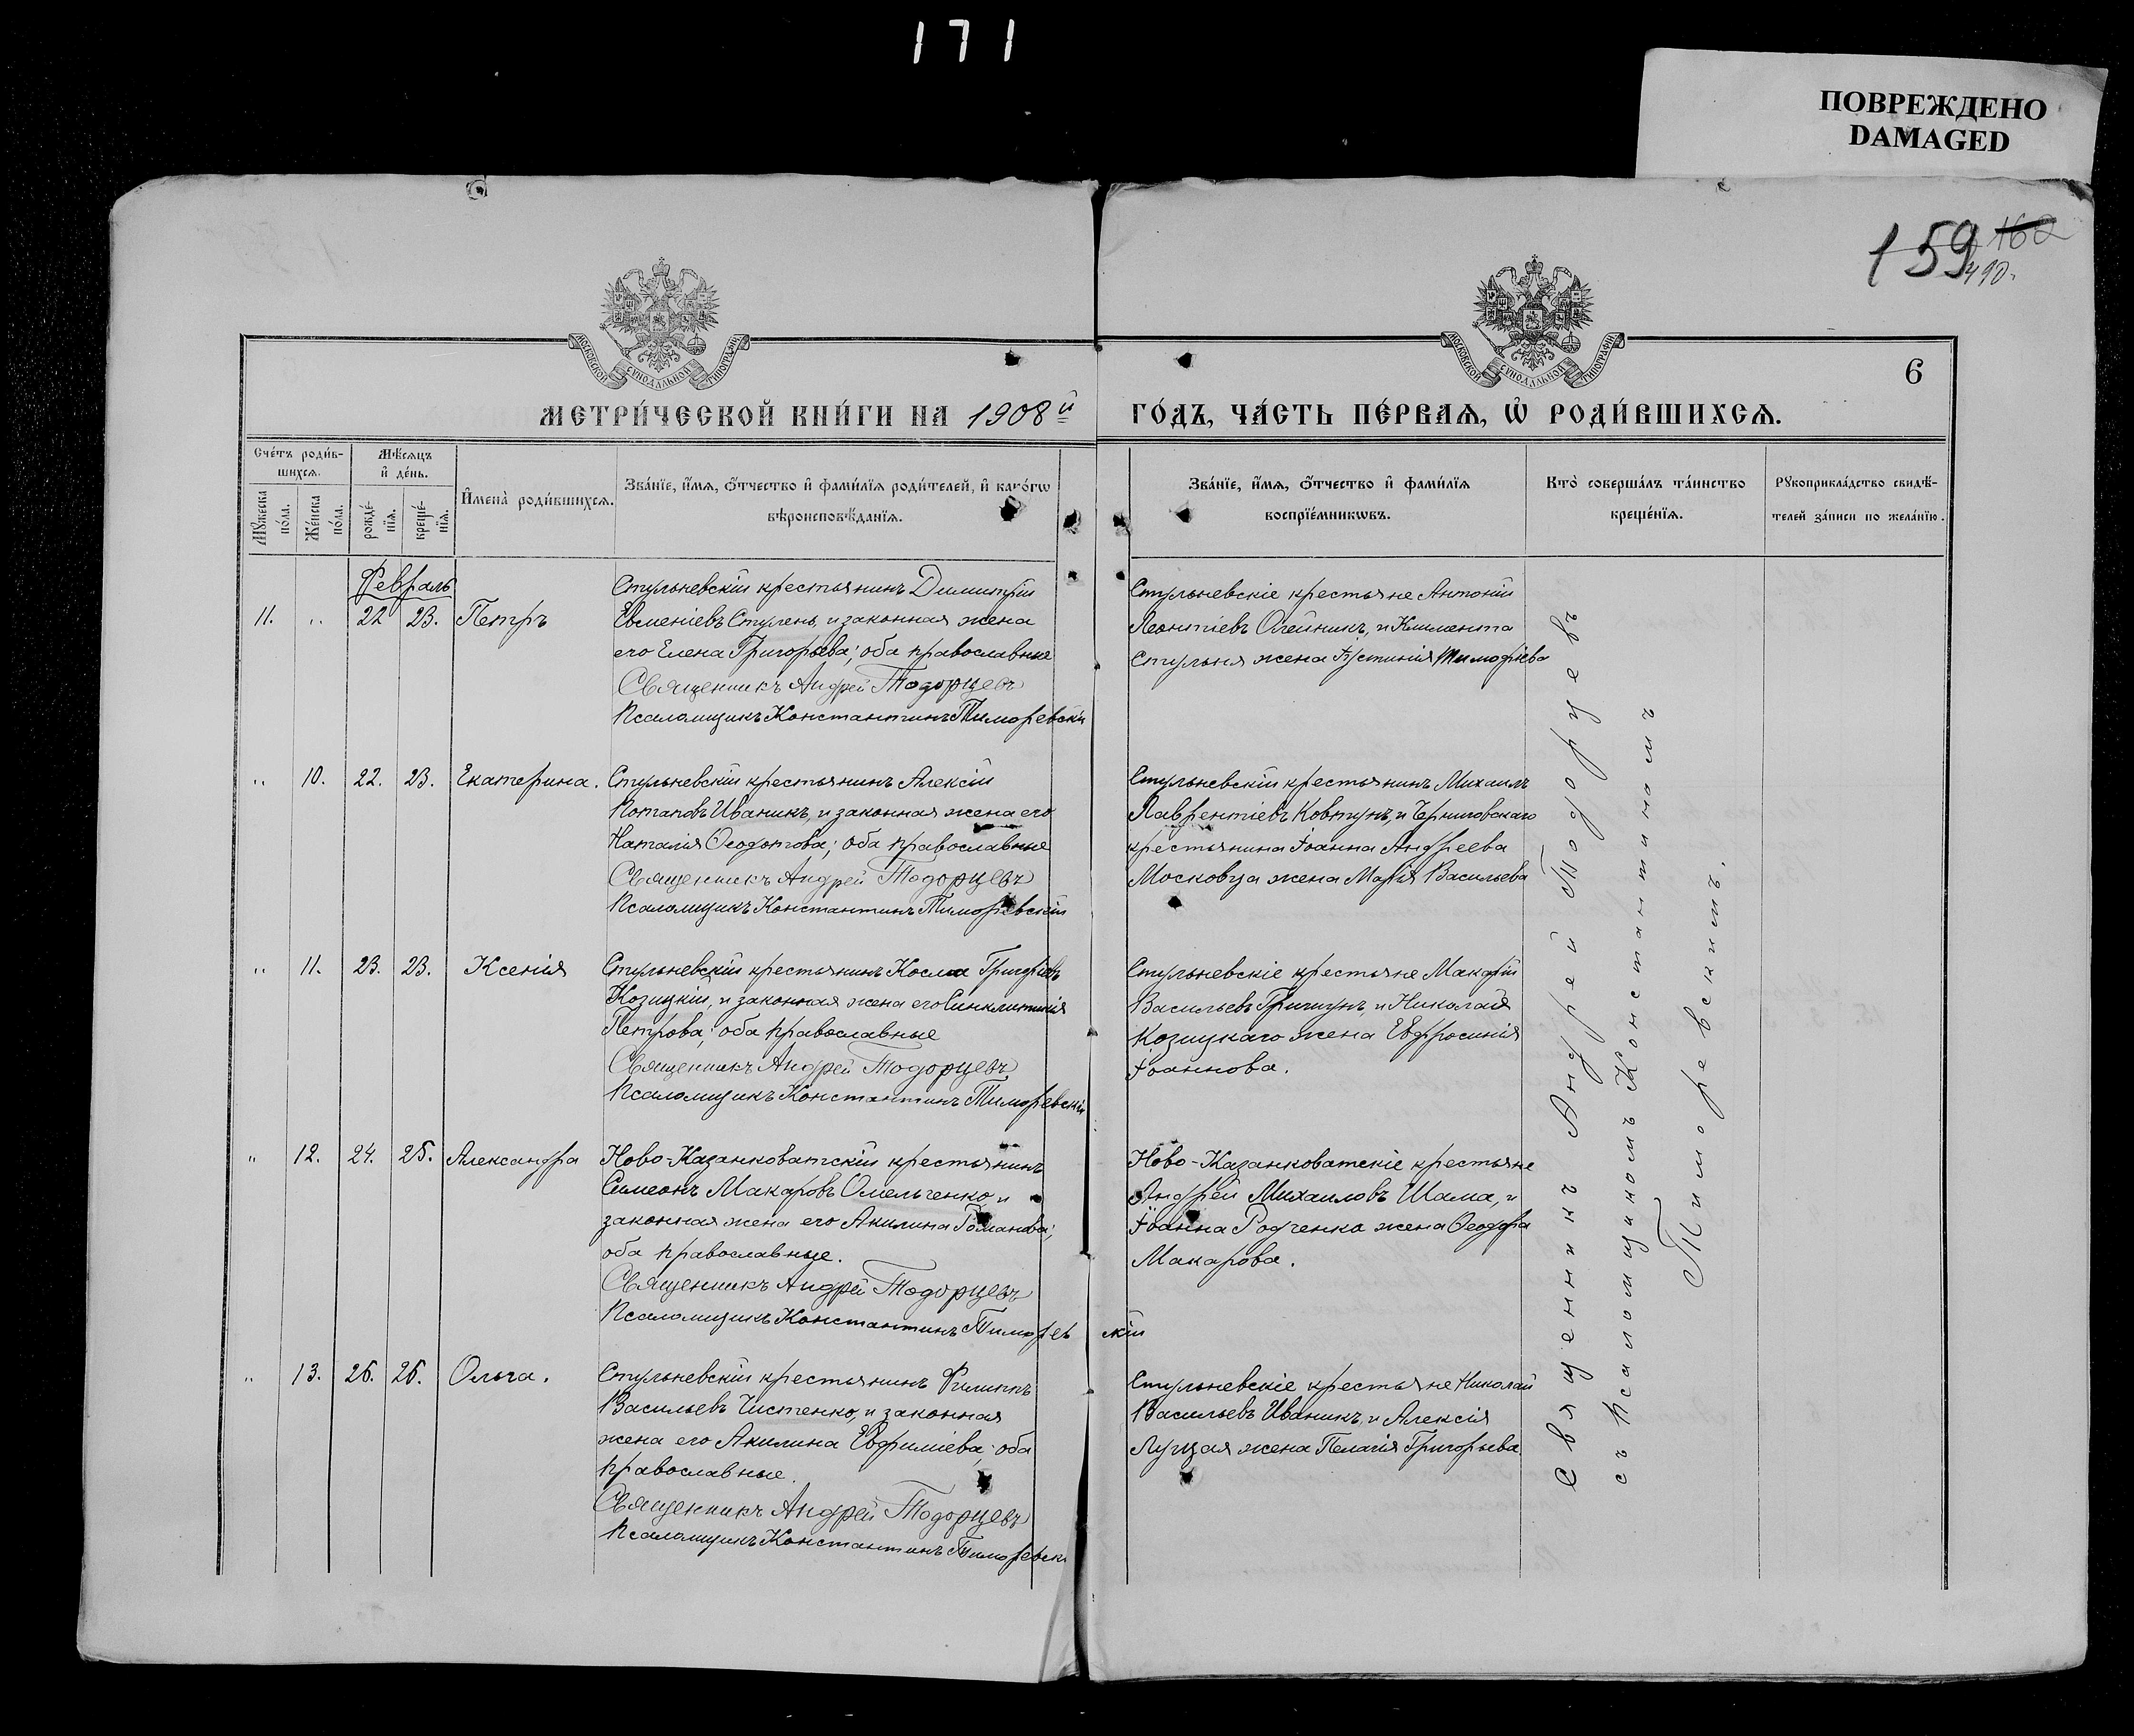 171
ПОВРЕЖДЕНО
DAMAGED
159 160
490.
МОСКОВСКОЙ СУНОДАЛЬНОЙ ТИПОГРАФІИ
МОСКОВСКОЙ СУНОДАЛЬНОЙ ТИПОГРАФІИ
6
МЕТРИ́ЧЕСКОЙ КНИ́ГИ НА 1908й
ГО́ДЪ, ЧА́СТЬ ПЕ́РВАѦ, Ѡ҆ РОДИ́ВШИХСѦ.
Сче́тъ роди́в-
шихсѧ.
Мѣ́сѧцъ
и҆ де́нь.
Мꙋ́жеска
по́ла.
Же́нска
по́ла.
рожде́-
нїѧ.
креще́-
нїѧ.
И҆мена̀ роди́вшихсѧ.
Зва́нїе, и҆́мѧ, ѻ҆́тчество и҆ фами́лїѧ роди́телей, и҆ како́гѡ
вѣроисповѣ́данїѧ.
Зва́нїе, и҆́мѧ, ѻ҆́тчество и҆ фами́лїѧ
воспрїе́мникѡвъ.
Кто̀ соверша́лъ та́инство
креще́нїѧ.
Рꙋкоприкла́дство свидѣ́-
телей за́писи по жела́нїю.
Февраль
11. „ 22 23. Петръ
Стульневскій крестьянинъ Димитрій
Евменіевъ Стулень, и законная жена
его Елена Григорьева; оба православные
Священникъ Андрей Тодорцевъ
Псаломщикъ Константинъ Тиморевскій
Стульневскіе крестьяне Антоній
Леонтіевъ Олейникъ, и Климента
Стульня жена Іустинія Тимофіева
„ 10. 22. 23. Екатерина.
Стульневскій крестьянинъ Алексій
Потаповъ Иваникъ, и законная жена его
Наталія Ѳеодотова; оба православные
Священникъ Андрей Тодорцевъ
Псаломщикъ Константинъ Тиморевскій
Стульневскій крестьянинъ Михаилъ
Лаврентіевъ Ковтунъ, и Черниговскаго
крестьянина Іоанна Андреева
Московца жена Марія Васильева
„ 11. 23. 23. Ксенія
Стульневскій крестьянинъ Косма Григоріевъ
Козицкій, и законная жена его Синклитикія
Петрова; оба православные
Священникъ Андрей Тодорцевъ
Псаломщикъ Константинъ Тиморевскій
Стульневскіе крестьяне Макарій
Васильевъ Гричунъ, и Николая
Козицкаго жена Евфросинія
Іоаннова.
„ 12. 24. 25. Александра
Ново-Казанковатскій крестьянинъ
Симеонъ Макаровъ Омельченко и
законная жена его Акилина Романова;
оба православные.
Священникъ Андрей Тодорцевъ
Псаломщикъ Константинъ Тиморевскій
Ново-Казанковатскіе крестьяне
Андрей Михаиловъ Шама, и
Іоанна Родченко жена Ѳеодора
Макарова.
„ 13. 26. 26. Ольга.
Стульневскій крестьянинъ Филиппъ
Васильевъ Чистенко, и законная
жена его Акилина Евфиміева; оба
православные.
Священникъ Андрей Тодорцевъ
Псаломщикъ Константинъ Тиморевскі
Стульневскіе крестьяне Николай
Васильевъ Иваникъ, и Алексія
Луцая жена Пелагія Григорьева.
Священникъ Андрей Тодорцевъ
съ псаломщикомъ Константиномъ
Тиморевскимъ.